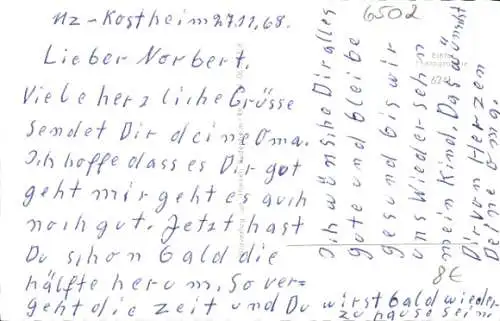 Mz-Kostheim 27.11.68.
Lieber Norbert.
Viele herzliche Grüsse
sendet Dir deine Oma.
Ich hoffe dass es Dir gut
geht mir geht es auch
noch gut. Jetzt hast
Du schon bald die
hälfte herum. So ver=
geht die Zeit und Du wirst bald wieder
zu hause sein.
Ich wünsche Dir alles
gute und bleibe
gesund bis wir
uns Wiedersehn
mein Kind. Das wünscht
Dir von Herzem
Deine Oma
6502
8€